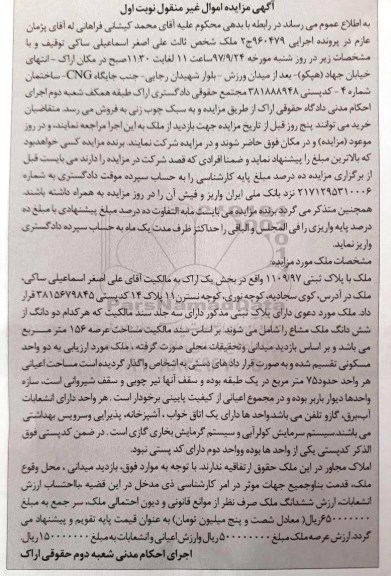 آگهی مزایده اموال غیر منقول نوبت اول
به اطلاع عموم می رساند در رابطه با بدهی محکوم علیه آقای محمد کیشانی فراهانی له آقای پژمان
عازم در پرونده اجرایی ۹۶۰۴۷۹ج۲ ملک شخص ثالث علی اصغر اسماعیلی ساکی توقیف و با
مشخصات زیر در روز شنبه مورخه ۹۷/۹/۲۴ساعت ۱۱ لغایت ۱۱:۳۰صبح در مکان اراک - انتهای
خیابان جهاد (هپکو)- بعد از میدان ورزش - بلوار شهیدان رجایی- جنب جایگاه CNG- ساختمان
شماره ۴ - کدپستی ۳۸۱۸۸۸۹۴۸ مجتمع حقوقی دادگستری اراک طبقه همکف شعبه دوم اجرای
احکام مدنی دادگاه حقوقی اراک از طریق مزایده و به سبک چوب زنی به فروش می رسد. متقاضیان
خرید می توانند پنج روز قبل از تاریخ مزایده جهت بازدید از ملک به این اجرا مراجعه نمایند، و در روز
موعود (مزایده) و در مکان فوق حاضر شوند و در مزایده شرکت نمایند. برنده مزایده کسی خواهدبود
که بالاترین مبلغ را پیشنهاد نماید و ضمنا افرادی که قصد شرکت در مزایده را دارند می بایست قبل
از برگزاری مزایده ده درصد مبلغ پایه کارشناسی را به حساب سپرده موقت دادگستری به شماره
۲۱۷۱۲۹۵۳۱۰۰۰۶ نزد بانک ملی ایران واریز و فیش آن را در روز مزایده به همراه داشته باشند.
همچنین متذکر می گردد برنده مزایده می بایست مابه التفاوت ده درصد مبلغ پیشنهادی با مبلغ ده
درصد پایه واریزی را فی المجلس و الباقی را حداکثر ظرف مدت یک ماه به حساب سپرده دادگستری
واریز نماید.
مشخصات ملک مورد مزایده:
ملک با پلاک ثبتی ۱۱۰۹/۹۷ واقع در بخش یک اراک به مالکیت آقای علی اصغر اسماعیلی ساکی.
ملک در آدرس، کوی سجادیه، کوچه نوری، کوچه نسترن ۱۱ پلاک ۱۴ کدپستی ۳۸۱۵۶۷۹۸۴۵ قرار
داد. ملک مورد دعوی دارای پلاک ثبتی مذکور دارای سه جلد سند مالکیت که هرکدام دو دانگ از
شش دانگ ملک مشاع را شامل می شوند. بر اساس سند مالکیت مساحت عرصه ۱۵۶ متر مربع
می باشد و بر اساس بازدید میدانی وتحقیقات محلی صورت گرفته، ملک مورد ارزیابی به دو واحد
مسکونی تقسیم شده و به صورت قرار داد های دستی به اشخاص واگذار گردیده است مساحت اعیانی
هر واحد حدود۷۵ متر مربع در یک طبقه بوده و سقف آنها تیر چوبی و سقف شیروانی است، سازه
واحدها دیوار باربر بوده و در مجموع اعیانی از کیفیت پایینی برخودار است. هر واحد دارای انشعابات
آب،برق، گاز و تلفن می باشد.واحد ها دارای یک اتاق خواب، آشپزخانه، پذیرایی وسرویس بهداشتی
می باشند.سیستم سرمایش کولرآبی و سیستم گرمایش بخاری گازی است. در ضمن کدپستی فوق
الذکر کدپستی یکی از واحد ها بوده وواحد دوم دارای کد پستی نبود.
املاک مجاور در این ملک حقوق ارتفاقیه ندارند. با توجه به موارد فوق، بازدید میدانی ، محل وقوع
ملک، قدمت بناوجمیع جهات موثر در امر کارشناسی ذی مدخل در این قضیه ،بااحتساب ارزش
انشعابات، ارزش ششدانگ ملک صرف نظر از موانع قانونی و دیون احتمالی ملک، سر جمع به مبلغ
۶۵۰۰۰۰۰۰۰ریال( معادل شصت و پنج میلیون تومان) به عنوان قیمت پایه تقویم و پیشنهاد می
گردد. ارزش عرصه ملک مبلغ ۵۰۰۰۰۰۰۰۰ ریال وارزش اعیانی و انشعابات به مبلغ ۱۵۰۰۰۰۰۰۰ریال.
اجرای احکام مدنی شعبه دوم حقوقی اراک